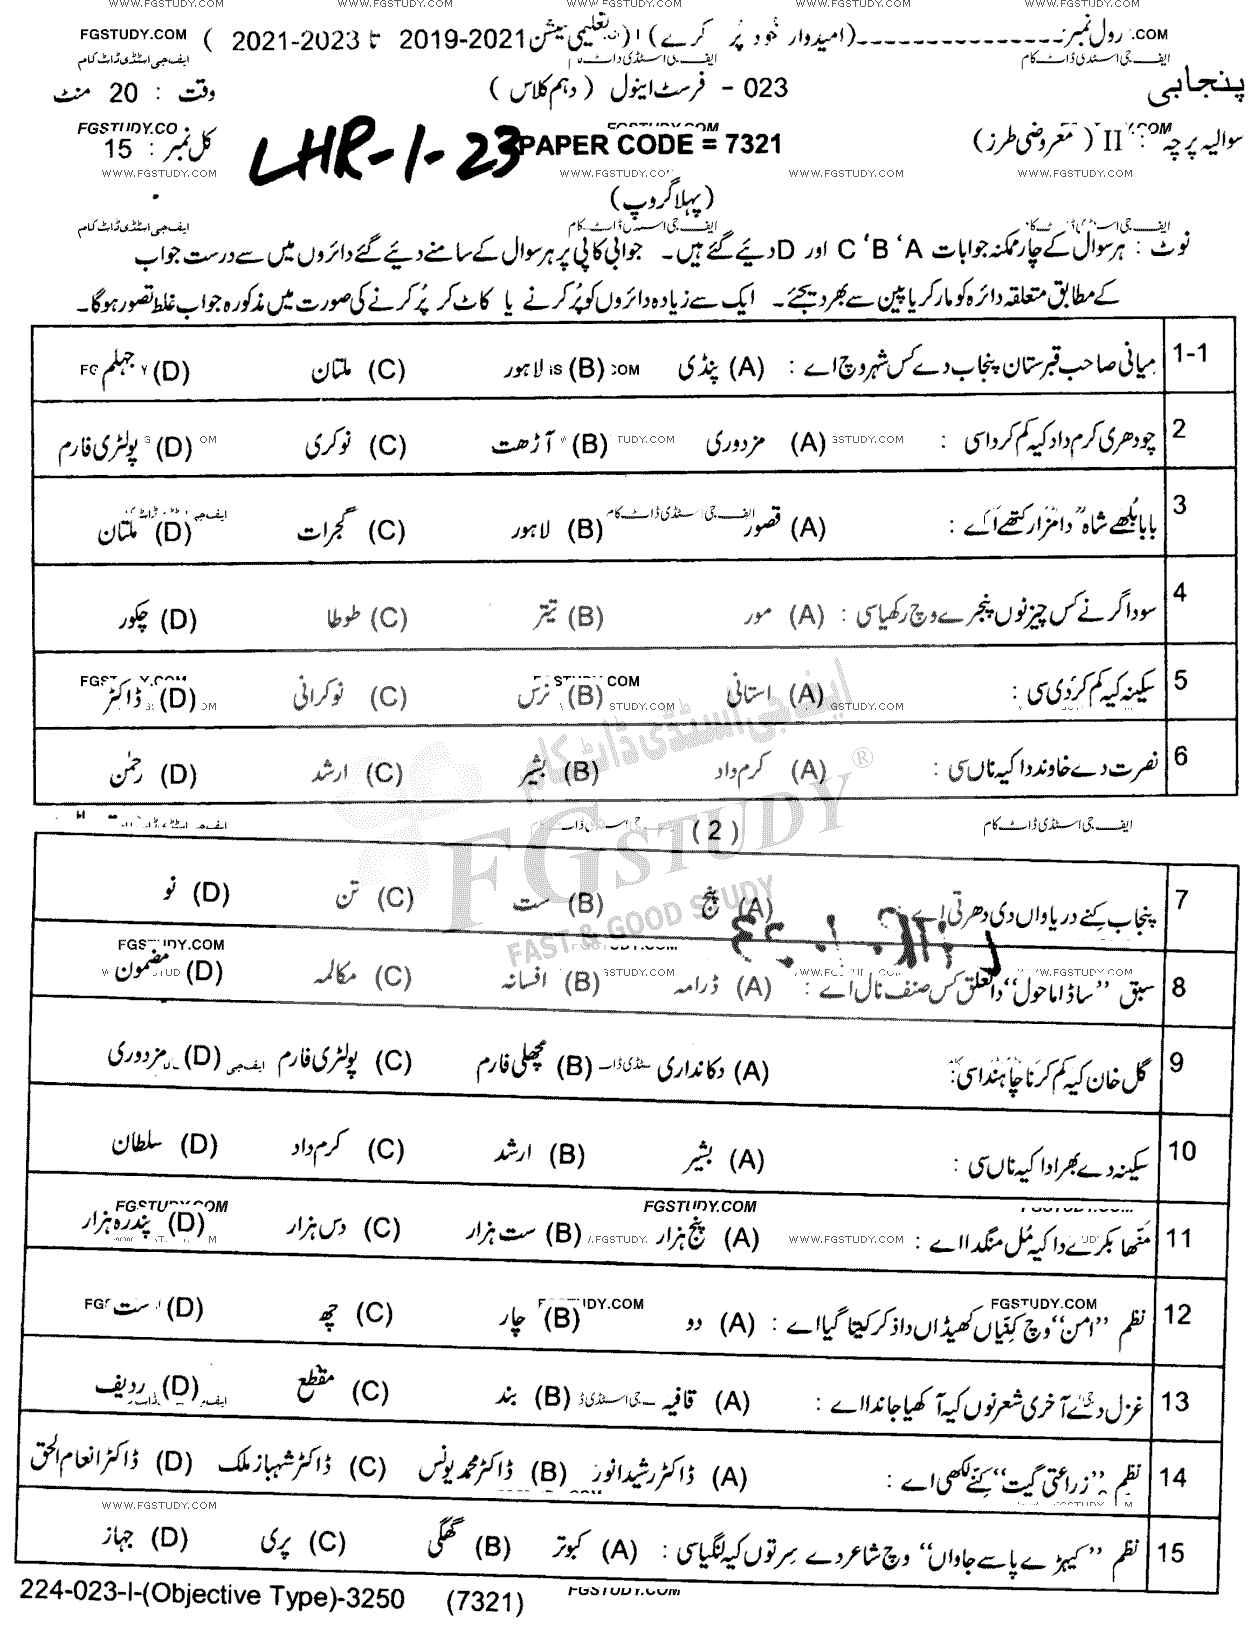 رول نمبر ---------------(امیدوار خود پُر کرے) (تعلیمی سیشن 2021-2019 تا 2023-2021 )
پنجابی 023 - فرسٹ اینول (دہم کلاس) وقت : 20 منٹ
سوالیہ پرچہ : II (معروضی طرز) PAPER CODE = 7321 LHR-1-23 کل نمبر : 15
(پہلا گروپ)
نوٹ : ہر سوال کے چار ممکنہ جوابات A ' B ' C اور D دیئے گئے ہیں۔ جوابی کاپی پر ہر سوال کے سامنے دیئے گئے دائروں میں سے درست جواب
کے مطابق متعلقہ دائرہ کو مارکر یا پین سے بھر دیجئے۔ ایک سے زیادہ دائروں کو پُر کرنے یا کاٹ کر پُر کرنے کی صورت میں مذکورہ جواب غلط تصور ہوگا۔
1-1 میانی صاحب قبرستان پنجاب دے کس شہر وچ اے : (A) پنڈی (B) لاہور (C) ملتان (D) جہلم
2 چودھری کرم داد کیہ کم کردا سی : (A) مزدوری (B) آڑھت (C) نوکری (D) پولٹری فارم
3 بابا بُلھے شاہؒ دا مزار کتھے اے : (A) قصور (B) لاہور (C) گجرات (D) ملتان
4 سوداگر نے کس چیز نوں پنجرے وچ رکھیا سی : (A) مور (B) تیتر (C) طوطا (D) چکور
5 سکینہ کیہ کم کردی سی : (A) استانی (B) نرس (C) نوکرانی (D) ڈاکٹر
6 نصرت دے خاوند دا کیہ ناں سی : (A) کرم داد (B) بشیر (C) ارشد (D) رحمٰن
(2)
7 پنجاب کنے دریاواں دی دھرتی اے : (A) پنج (B) ست (C) تن (D) نو
8 سبق "ساڈا ماحول" دا تعلق کس صنف نال اے : (A) ڈرامہ (B) افسانہ (C) مکالمہ (D) مضمون
9 گل خان کیہ کم کرنا چاہندا سی: (A) دکانداری (B) مچھلی فارم (C) پولٹری فارم (D) مزدوری
10 سکینہ دے بھرا دا کیہ ناں سی : (A) بشیر (B) ارشد (C) کرم داد (D) سلطان
11 متھا بکرے دا کیہ مُل منگدا اے : (A) پنج ہزار (B) ست ہزار (C) دس ہزار (D) پندرہ ہزار
12 نظم "امن" وچ کنیاں کھیڈاں دا ذکر کیتا گیا اے : (A) دو (B) چار (C) چھ (D) ست
13 غزل دے آخری شعر نوں کیہ آکھیا جاندا اے : (A) قافیہ (B) بند (C) مقطع (D) ردیف
14 نظم "زراعتی گیت" کنے لکھی اے : (A) ڈاکٹر رشید انور (B) ڈاکٹر محمد یونس (C) ڈاکٹر شہباز ملک (D) ڈاکٹر انعام الحق
15 نظم "کیہڑے پاسے جاواں" وچ شاعر دے سر توں کیہ لنگیا سی : (A) کبوتر (B) گھگی (C) پری (D) جہاز
224-023-I-(Objective Type)-3250 (7321)
FGSTUDY.COM
WWW.FGSTUDY.COM
ایف جی اسٹڈی ڈاٹ کام
FGSTUDY®
FAST & GOOD STUDY